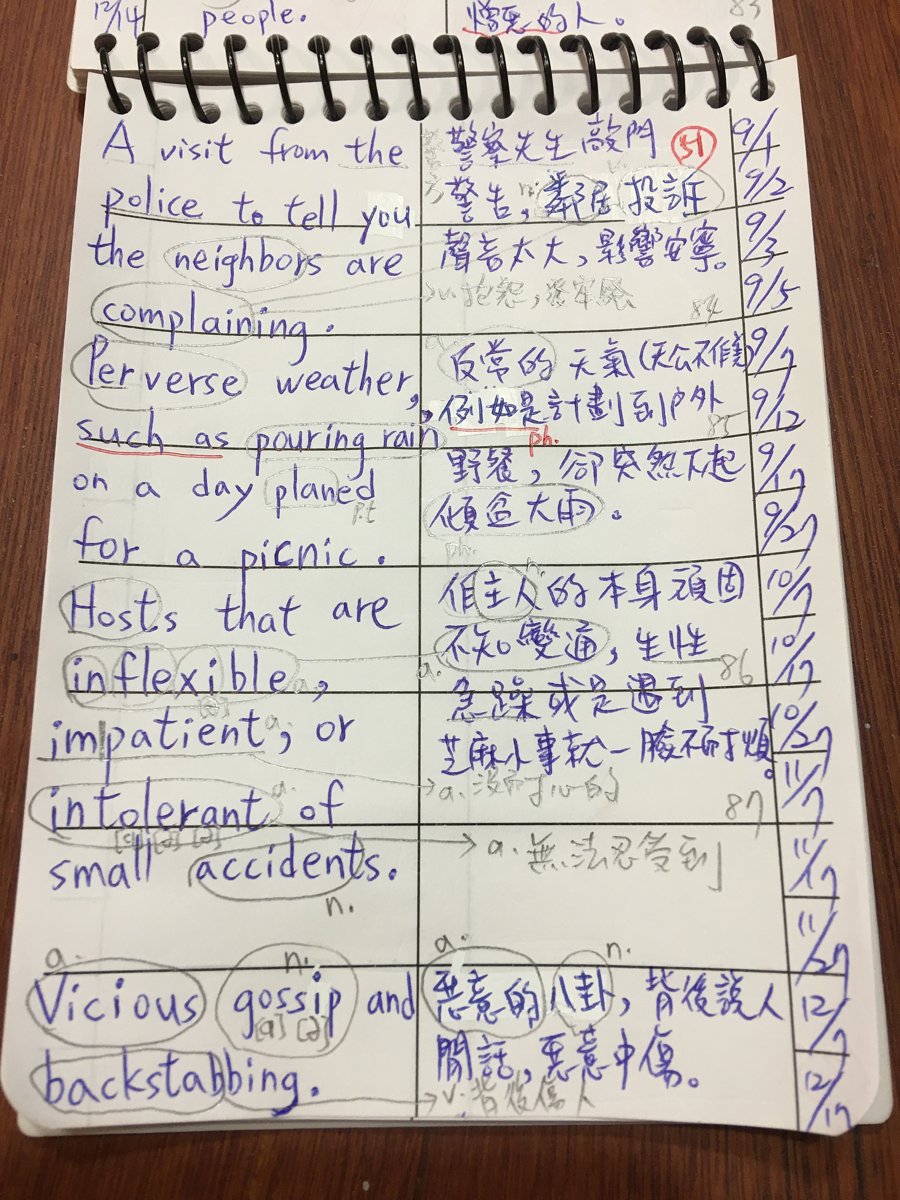 12/14 people. 憎惡的人。 83
A visit from the 警察先生敲門 51 9/1
police to tell you 警告, 鄰居投訴 9/2
n. v.
the neighbors are 聲音太大, 影響安寧。 9/3
complaining. v. 抱怨, 發牢騷 84 9/5
a.
Perverse weather, 反常的天氣(天公不作美) 9/7
such as pouring rain 例如是計劃到戶外 85 9/12
ph.
on a day planed 野餐, 卻突然下起 9/17
p.t 傾盆大雨。 9/27
for a picnic. ph.
n.
Hosts that are 但主人的本身頑固 10/7
inflexible, a. 不知變通, 生性 86 10/17
[ə] a.
impatient, or 急躁或是遇到 10/27
芝麻小事就一臉不耐煩。 11/7
intolerant of a. 沒耐心的 87
[ɑ] [ə] [ə] a. 無法忍受到 11/17
small accidents.
n. 11/27
a. n. a. n.
Vicious gossip and 惡意的八卦, 背後說人 12/7
[ɑ] [ə]
backstabbing. 閒話, 惡意中傷。 12/17
v. 背後傷人